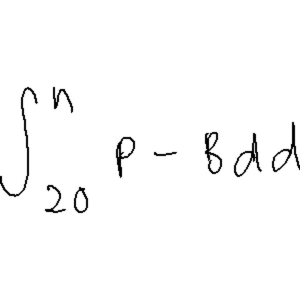 \int_{20}^{n} p - Bdd